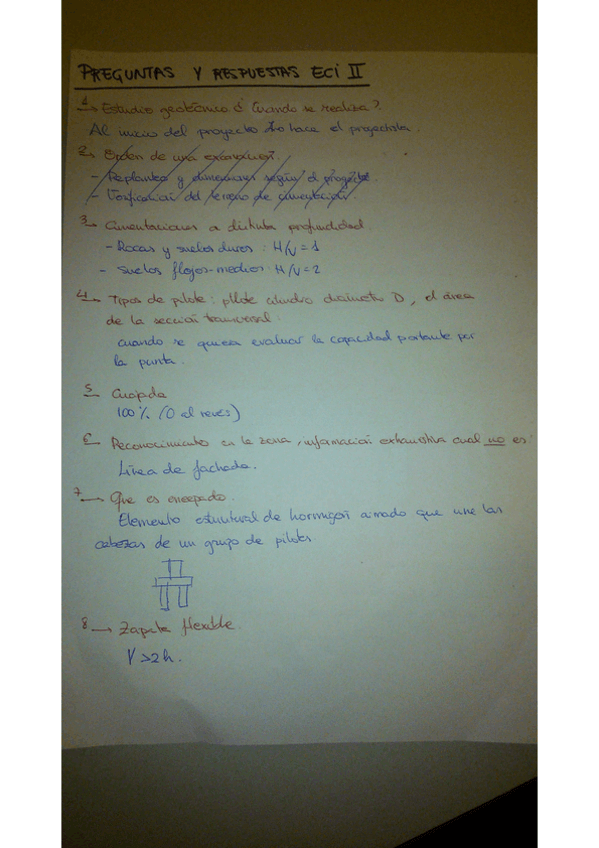 PREGUNTAS Y RESPUESTAS ECI II
1 → Estudio geotécnico ¿Cuando se realiza?
Al inicio del proyecto lo hace el proyectista.
2 → Orden de una excavación.
- Replanteo y dimensiones según el proyecto.
- Verificación del terreno de cimentación.
3 → Cimentaciones a distinta profundidad
- Rocas y suelos duros: H/V = 1
- Suelos flojos-medios: H/V = 2
4 → Tipos de pilote: pilote cilindro diametro D, el área
de la sección transversal:
cuando se quiera evaluar la capacidad portante por
la punta.
5 Cuajada
100% (O al revés)
6 Reconocimiento en la zona, información exhaustiva cual no es:
Línea de fachada.
7 → Que es encepado.
Elemento estructural de hormigón armado que une las
cabezas de un grupo de pilotes.
8 → Zapata flexible
V > 2h.